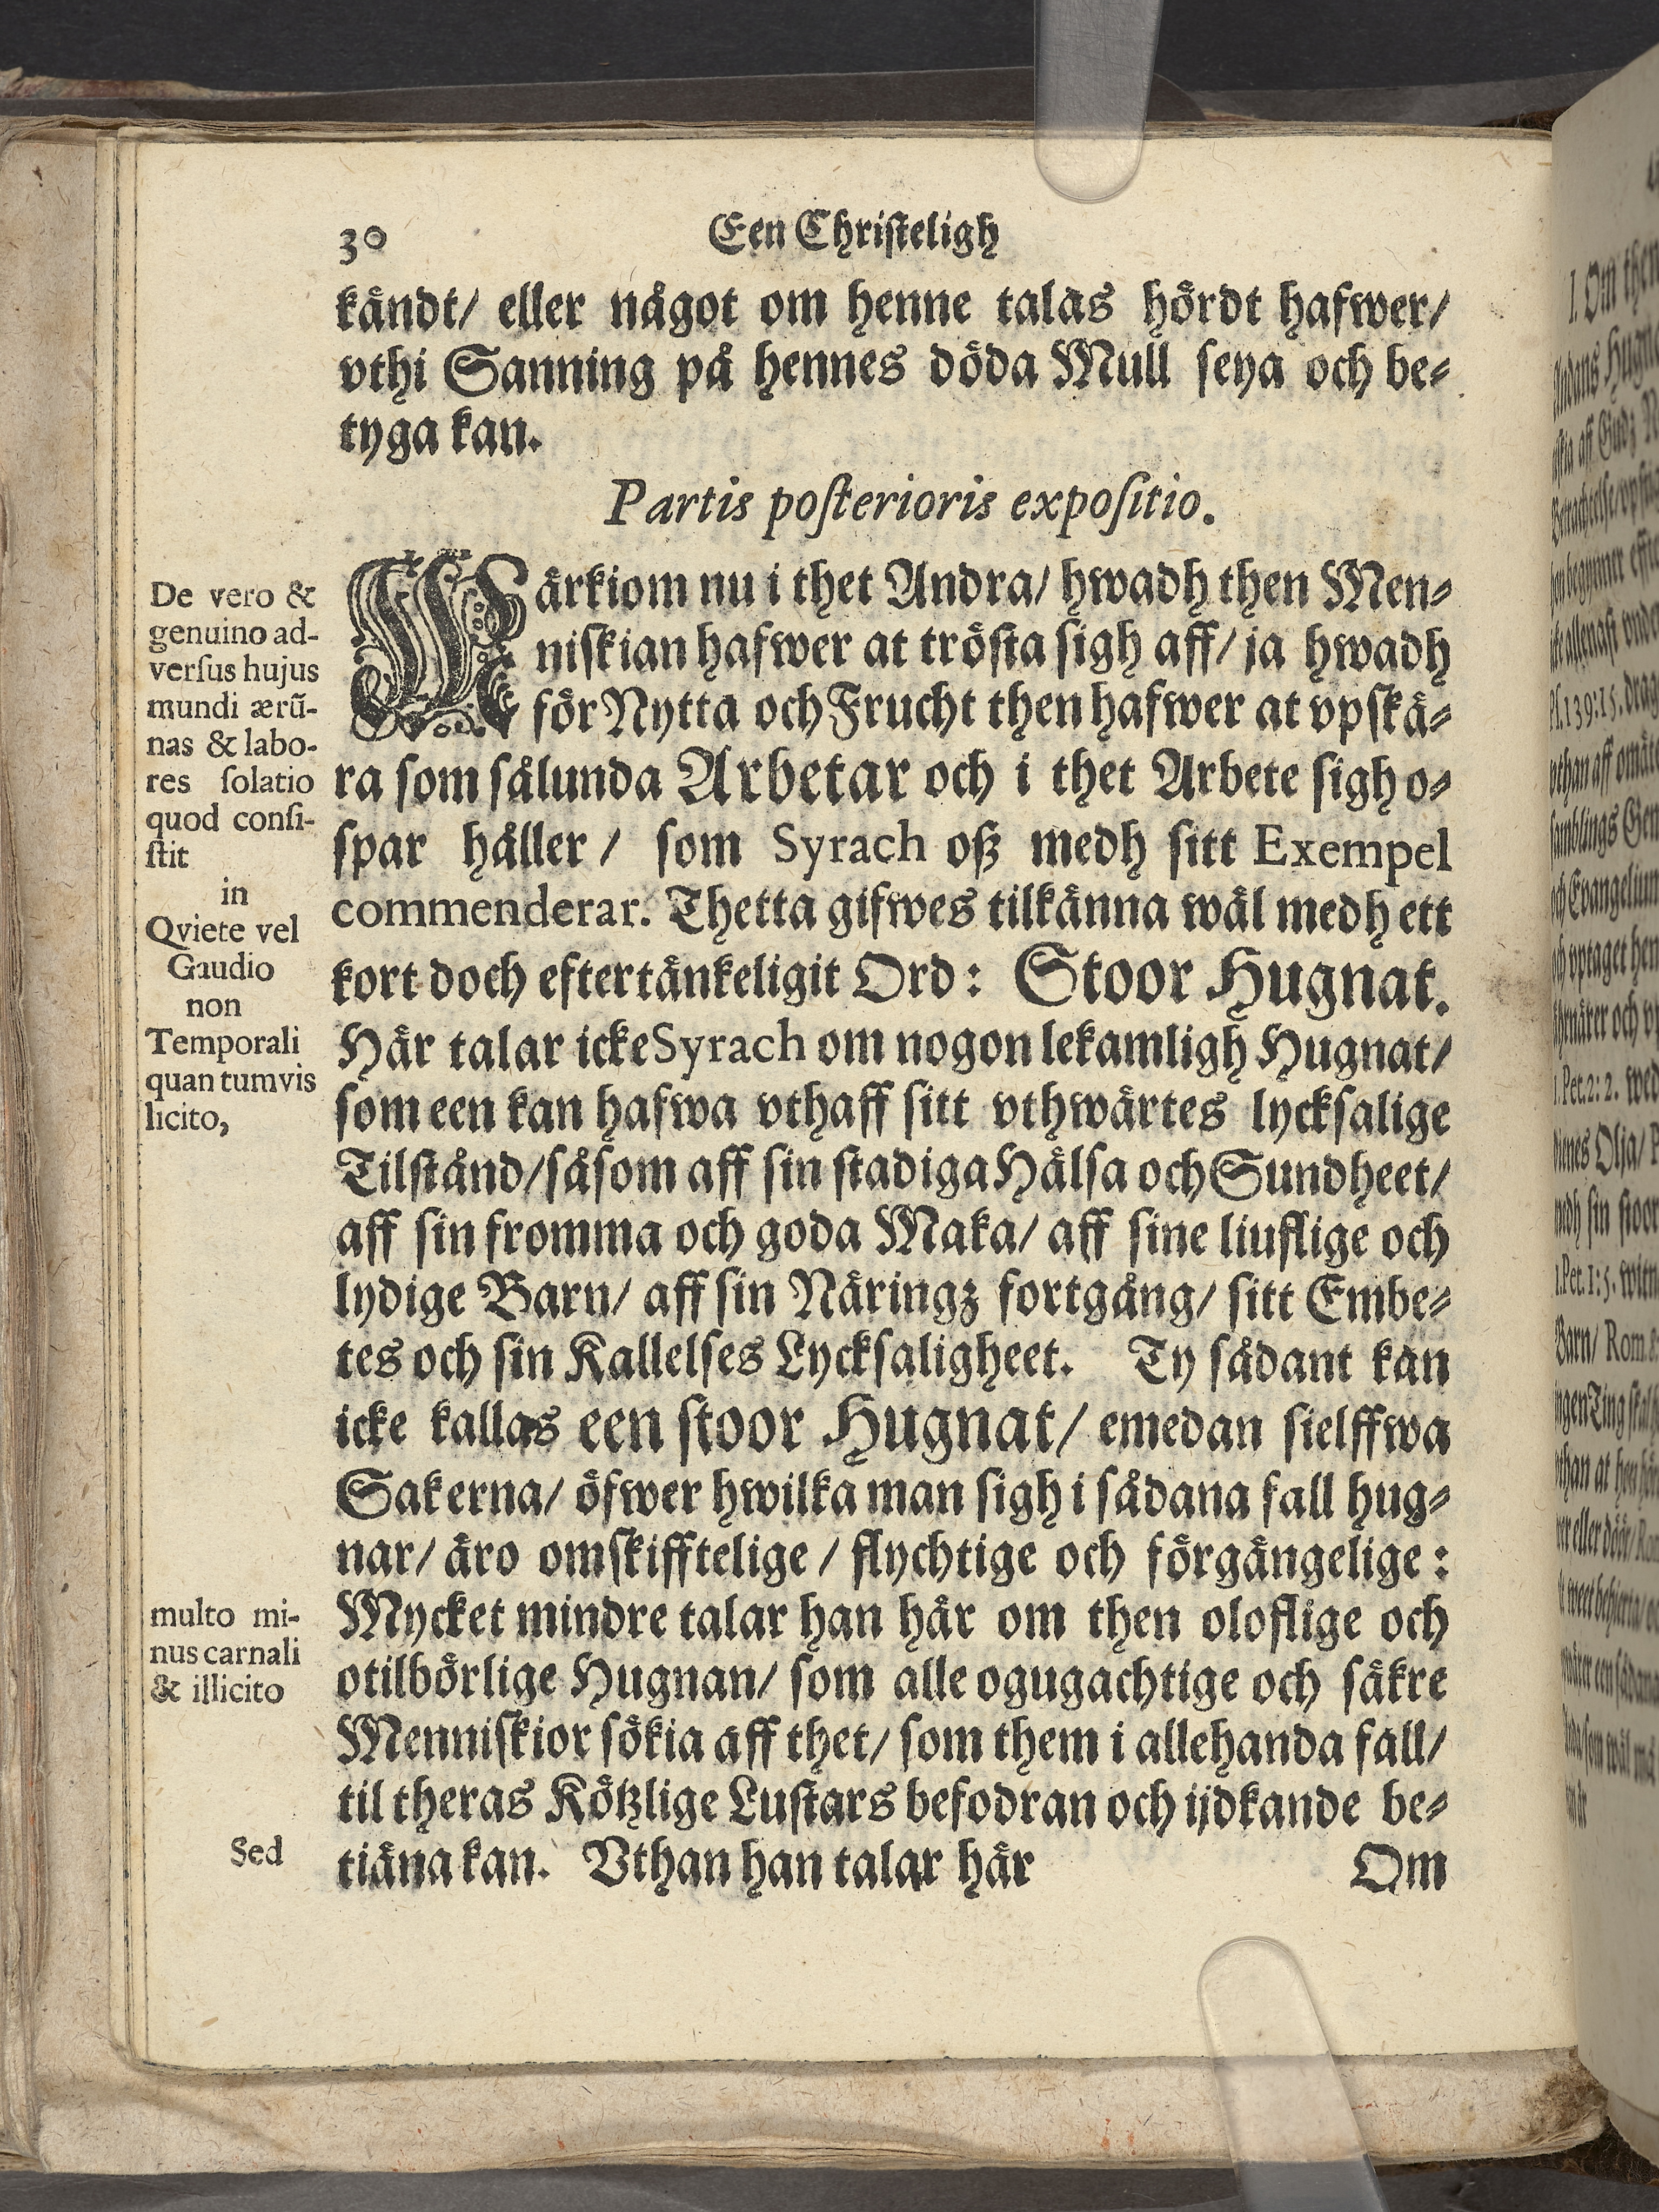 30 Een Christeligh
kändt/ eller något om henne talas hördt hafwer/
vthi Sanning på hennes döda Mull seya och be⸗
tyga kan.
Partis posterioris expositio.
WErkiom nu i thet Andra/ hwadh then Men⸗
niskian hafwer at trösta sigh aff/ ja hwadh
för Nytta och Frucht then hafwer at vpskä⸗
ra som sålunda Arbetar och i thet Arbete sigh o⸗
spar håller/ som Syrach oß medh sitt Exempel
commenderar. Thetta gifwes tilkänna wäl medh ett
kort doch eftertänkeligit Ord: Stoor Hugnat.
Här talar icke Syrach om nogon lekamligh Hugnat/
som een kan hafwa vthaff sitt vthwärtes lycksalige
Tilstånd/ såsom aff sin stadiga Hälsa och Sundheet/
aff sin fromma och goda Maka/ aff sine liuflige och
lydige Barn/ aff sin Näringz fortgång/ sitt Embe⸗
tes och sin Kallelses Lycksaligheet. Ty sådant kan
icke kallas een stoor Hugnat/ emedan sielffwa
Sakerna/ öfwer hwilka man sigh i sådana fall hug⸗
nar/ äro omskifftelige/ flychtige och förgängelige:
Mycket mindre talar han här om then oloflige och
otilbörlige Hugnan/ som alle ogugachtige och säkre
Menniskior sökia aff thet/ som them i allehanda fall/
til theras Kötzlige Lustars befodran och ijdkande be⸗
tiäna kan. Vthan han talar här
Om
De vero &
genuino ad-
versus hujus
mundi ærũ-
nas & labo-
res solatio
quod consi-
stit
in
Qviete vel
Gaudio
non
Temporali
quantumvis
licito,
multo mi-
nus carnali
& illicito
Sed